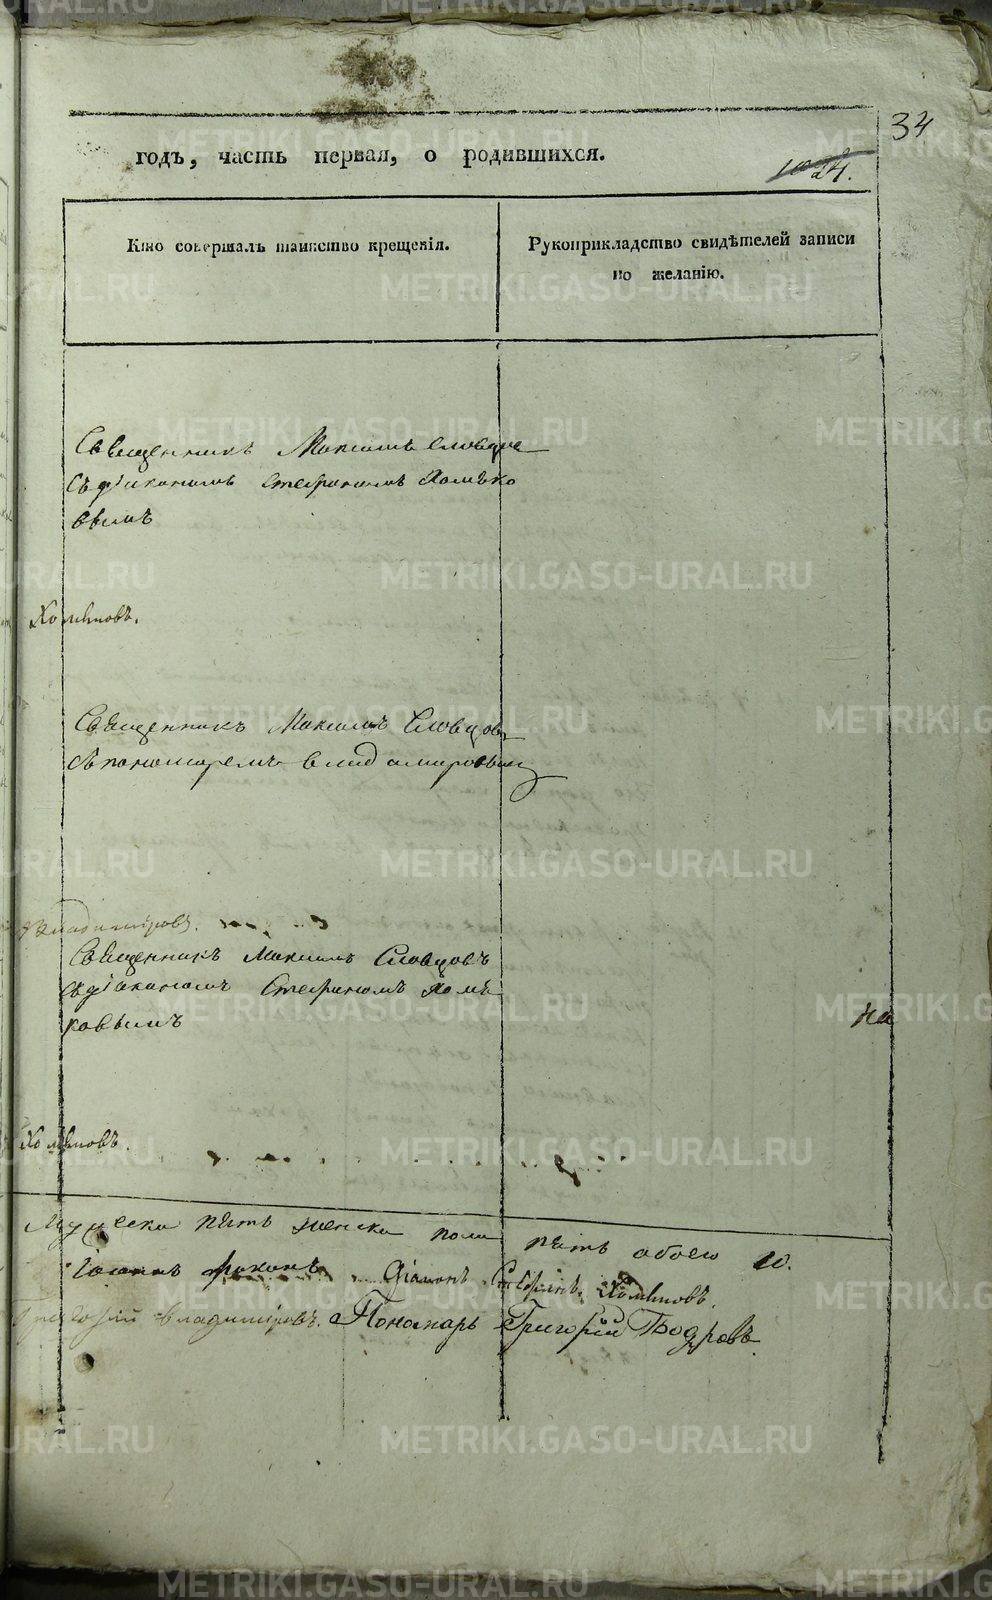 34
годъ, часть первая, о родившихся.
24.
Кто совершалъ таинство крещенія.
Рукоприкладство свидѣтелей записи
по желанію.
Священникъ Максимъ Словцов
съ діакономъ Стефаномъ Хомѣко
вымъ
Хомѣковъ.
Священникъ Максимъ Словцов
съ пономаремъ Владимировым
Владиміровъ.
Священникъ Максимъ Словцовъ
съ діакономъ Стефаномъ Хомѣ
ковымъ
на
Хомѣковъ.
Мужеска пять женска пола пять обоего 10.
Діаконъ Стефанъ Хомѣковъ.
Григорій Владиміровъ. Пономарь Григорій Бодровъ
METRIKI.GASO-URAL.RU